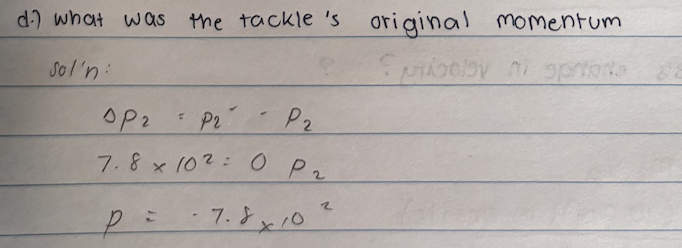 d.) what was the tackle's original momentum
sol'n:
Δp₂ = p₂' - p₂
7.8 × 10² = 0 p₂
p = -7.8 × 10²